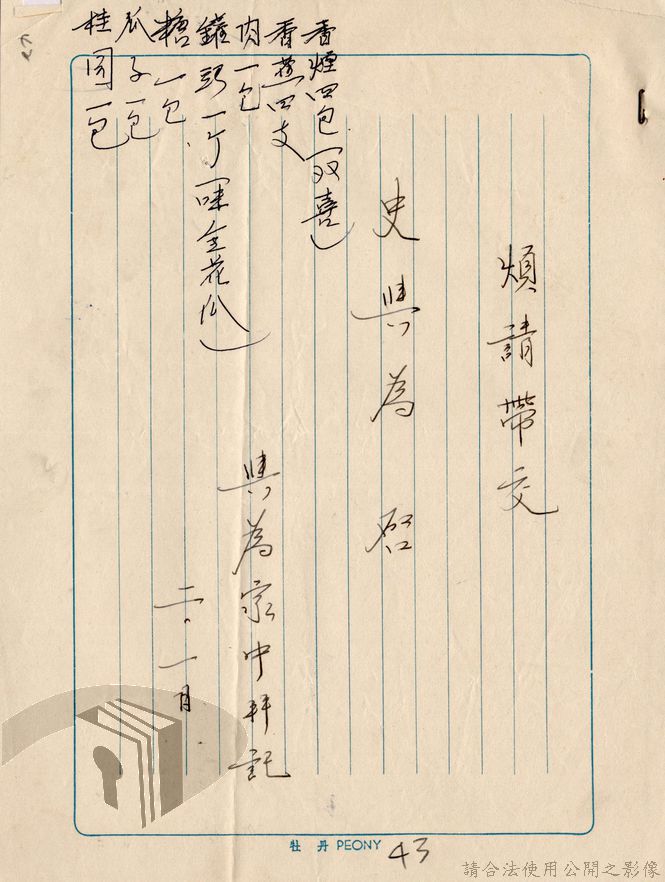 煩請帶交
史與為 啓
與為家中拜託
二.一月
香煙四包(双喜)
香蕉四支
肉一包
鑵頭一個(味全花瓜)
糖一包
瓜子一包
桂圓一包
牡丹 PEONY
43
請合法使用公開之影像